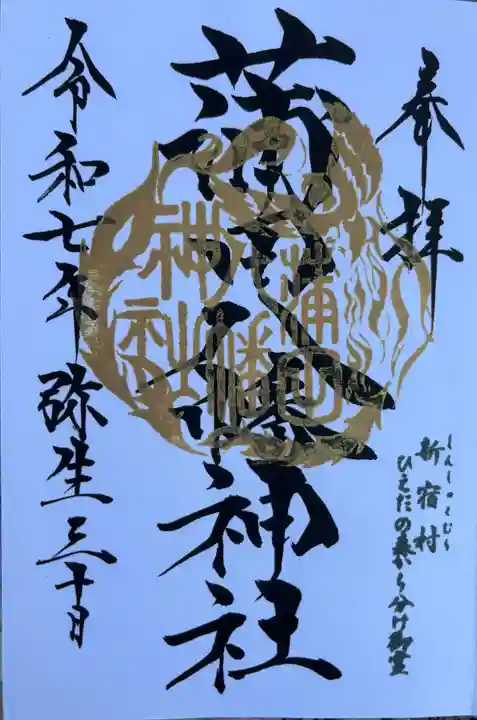 奉拝
しんしゅくむら
新宿村
ひえだの森から分け御霊
蒲田八幡神社
蒲田八幡神社
令和七年弥生三十日